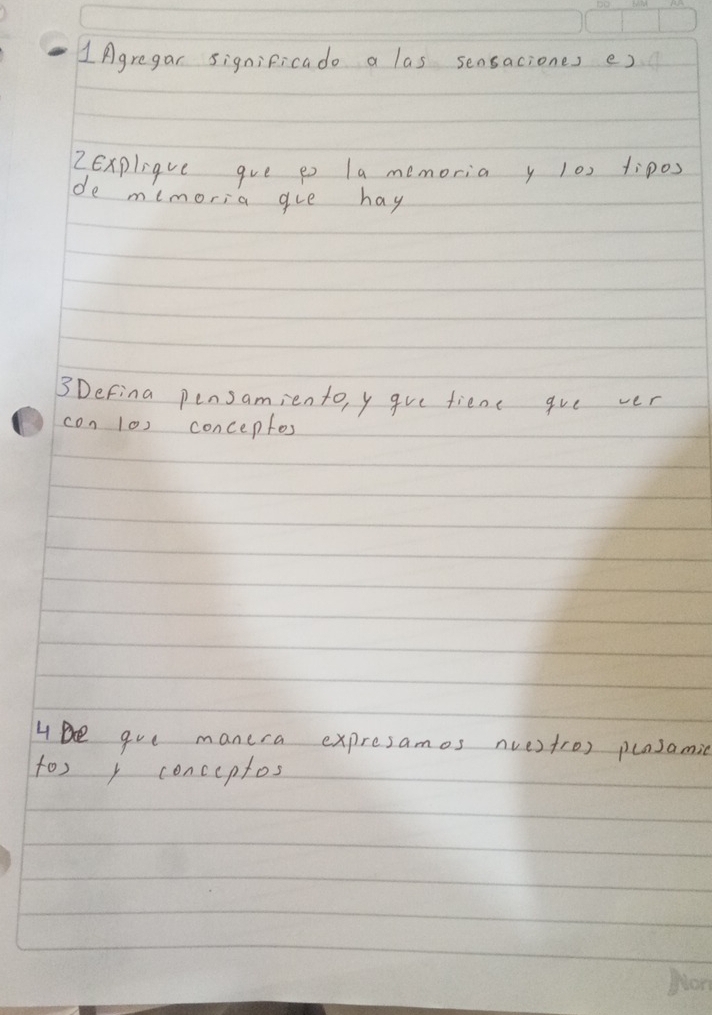 DD MM AA
1 Agregar significado a las sensaciones es
2 Explique que es la memoria y los tipos
de memoria que hay
3 Defina pensamiento, y que tiene que ver
con los conceptos
4 De que manera expresamos nuestros pensamie
tos y conceptos
Nor